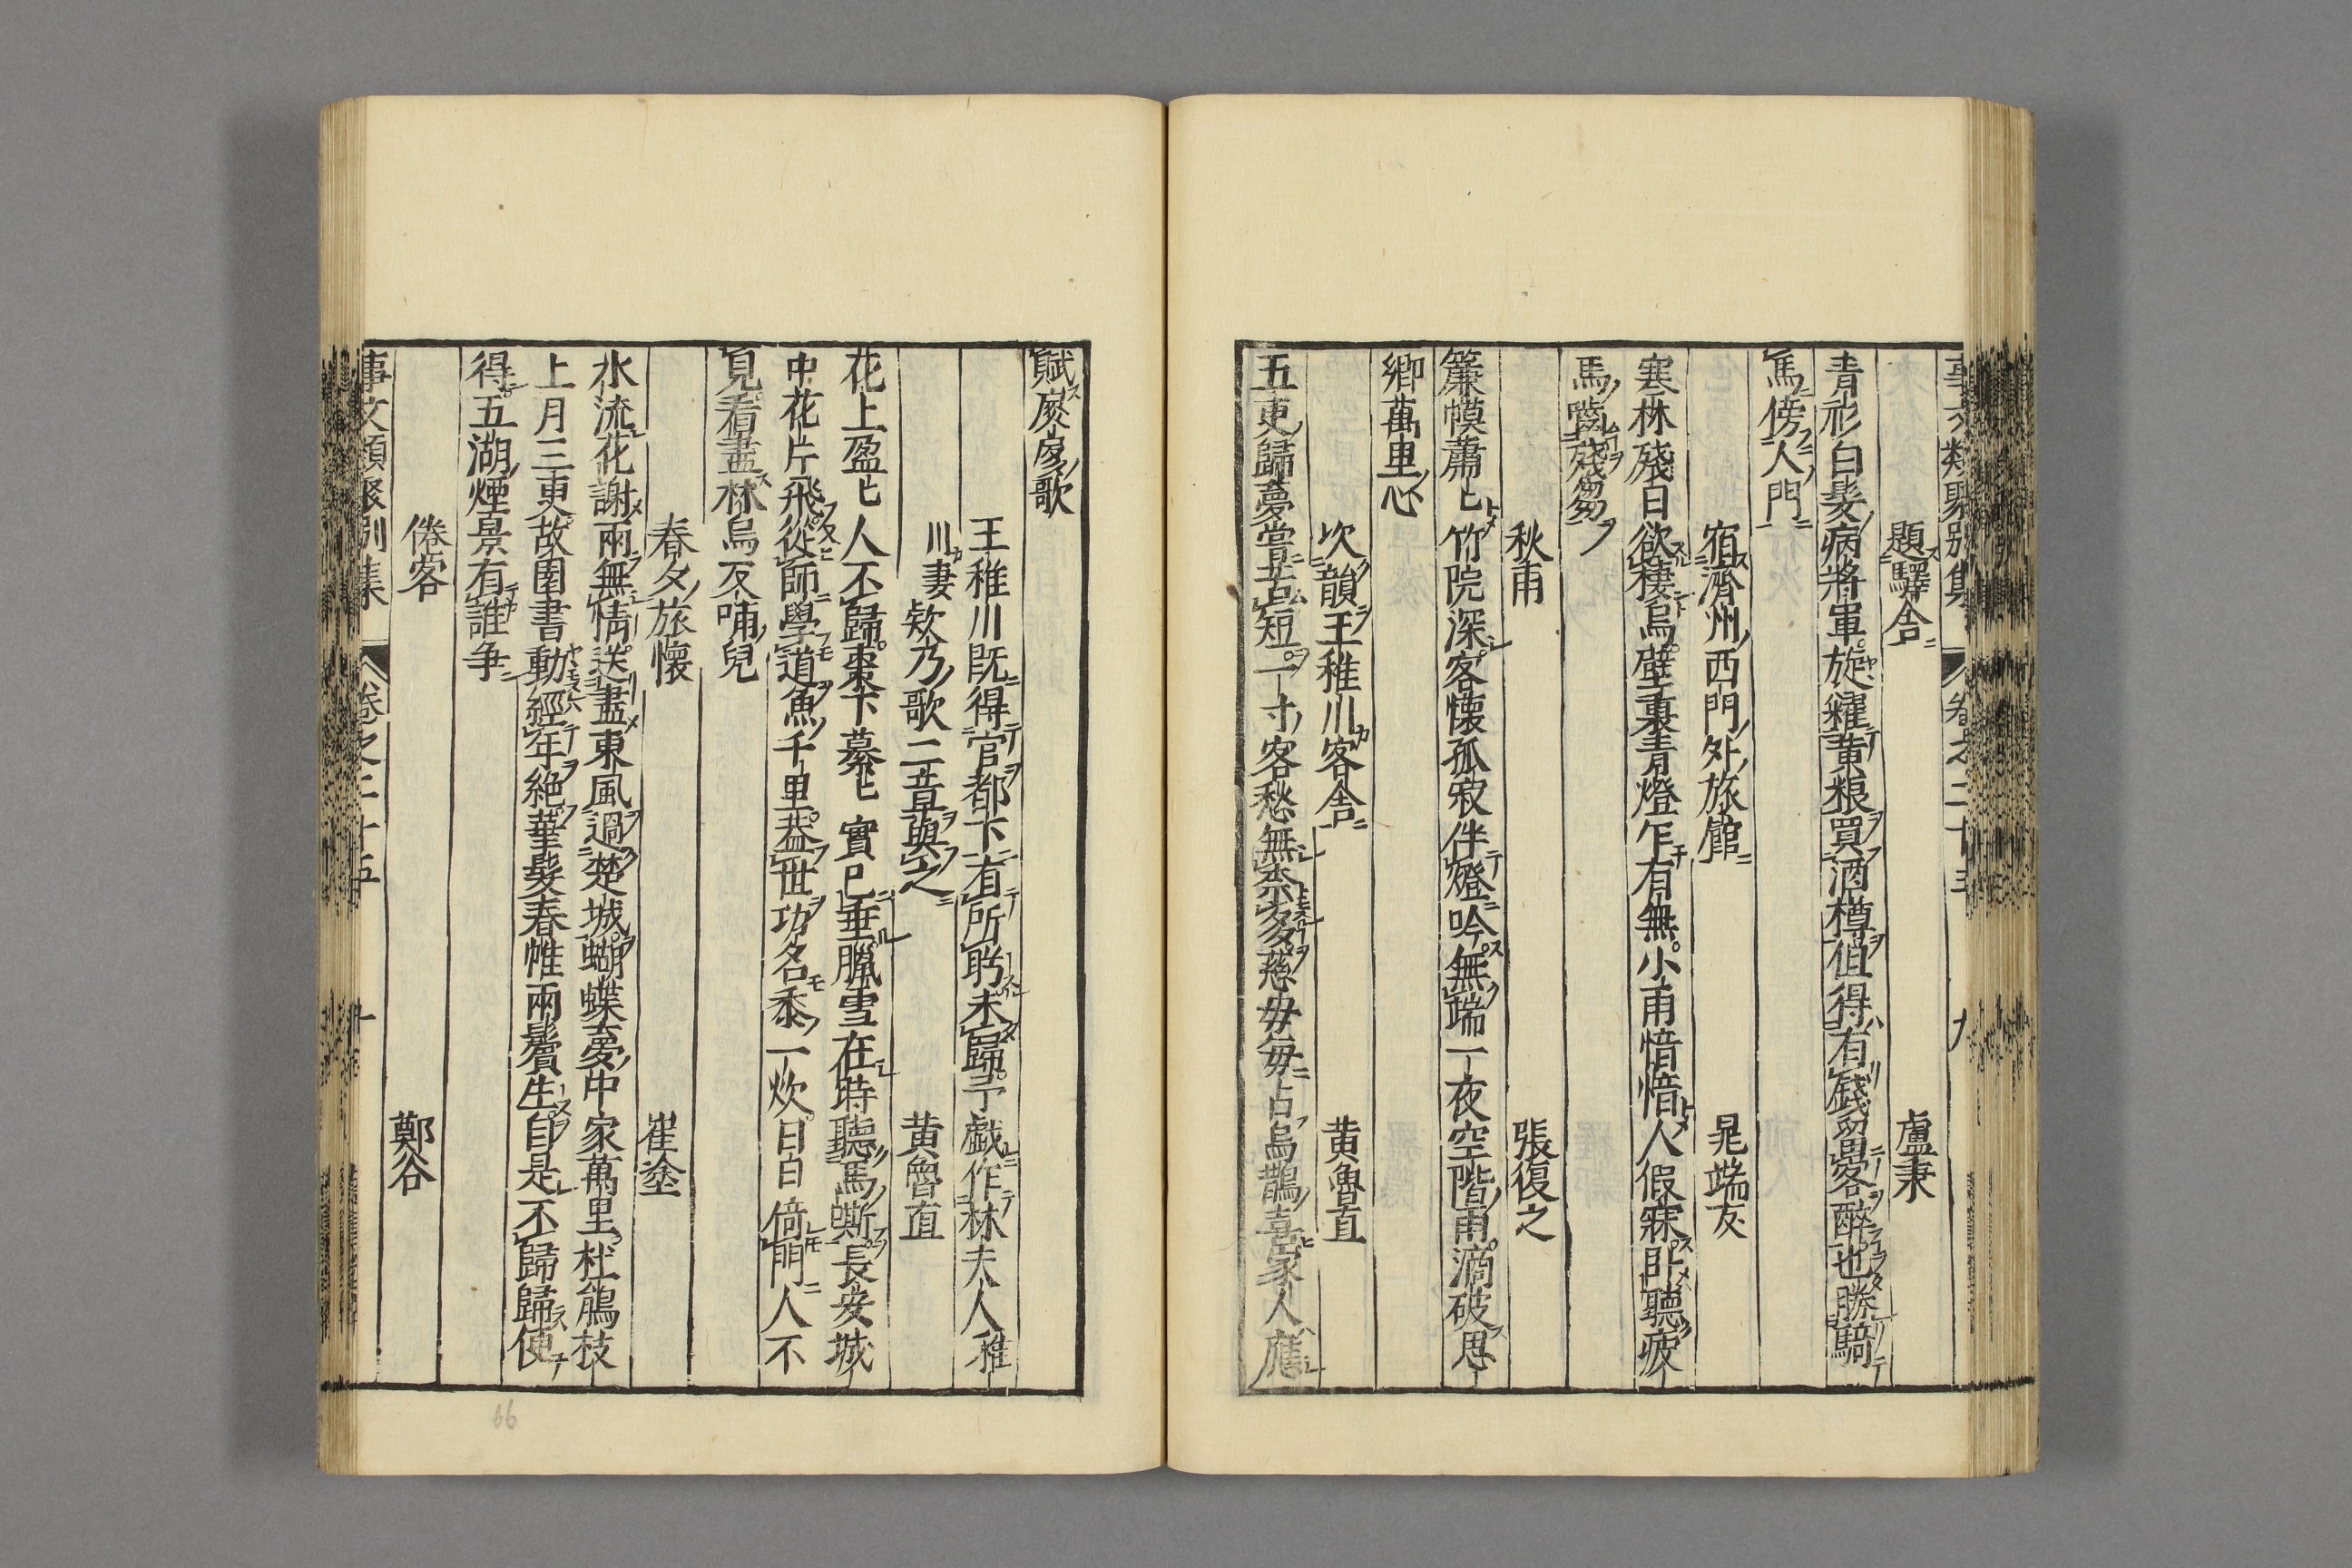 事文類聚別集 卷之二十五 九
題驛舍 盧秉
青衫白髮病將軍旋糴黃粮買酒樽但得有錢留客醉也勝騎
馬傍人門
宿濟州西門外旅館 晁端友
寒林殘日欲棲烏壁裏青燈乍有無小雨愔愔人假寐臥聽疲
馬齧殘芻
秋雨 張復之
簾幙蕭〻竹院深客懷孤寂伴燈吟無端一夜空階雨滴破思
鄉萬里心
次韻王稚川客舍 黃魯直
五更歸夢常苦短一寸客愁無柰多慈母每占烏鵲喜家人應
賦扊扅歌
王稚川既得官都下有所盻未歸予戯作林夫人
欸乃歌二章與之 黃魯直
花上盈〻人不歸棗下纂〻實已垂臘雪在時聽馬嘶長安城
中花片飛從師學道魚千里葢世功名黍一炊日日倚門人不
見看盡林烏反哺兒
春夕旅懷 崔塗
水流花謝兩無情送盡東風過楚城蝴蝶夢中家萬里杜鵑枝
上月三更故園書動經年絕華髮春帷兩鬢生自是不歸歸便
得五湖煙景有誰争
倦客 鄭谷
事文類聚別集 卷之二十五 十
66